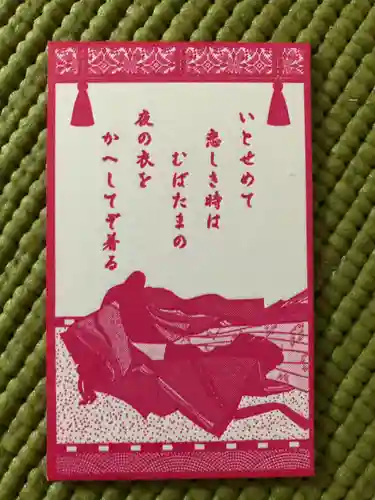 いとせめて
恋しき時は
むばたまの
夜の衣を
かへしてぞ着る